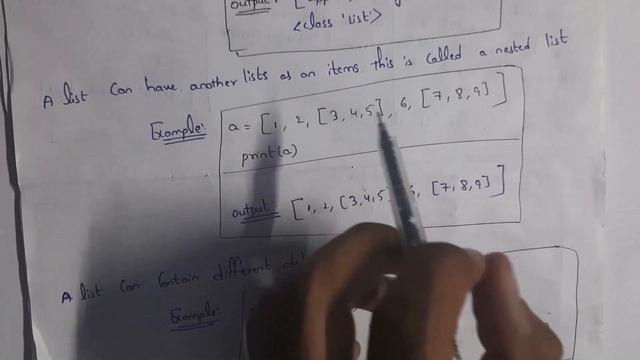 output:
<class 'list'>
A list Can have another lists as an items this is called a nested list
Example: a = [1, 2, [3, 4, 5], 6, [7, 8, 9]]
print(a)
output: [1, 2, [3, 4, 5 6, [7, 8, 9]]
A list Can Contain different
Example: